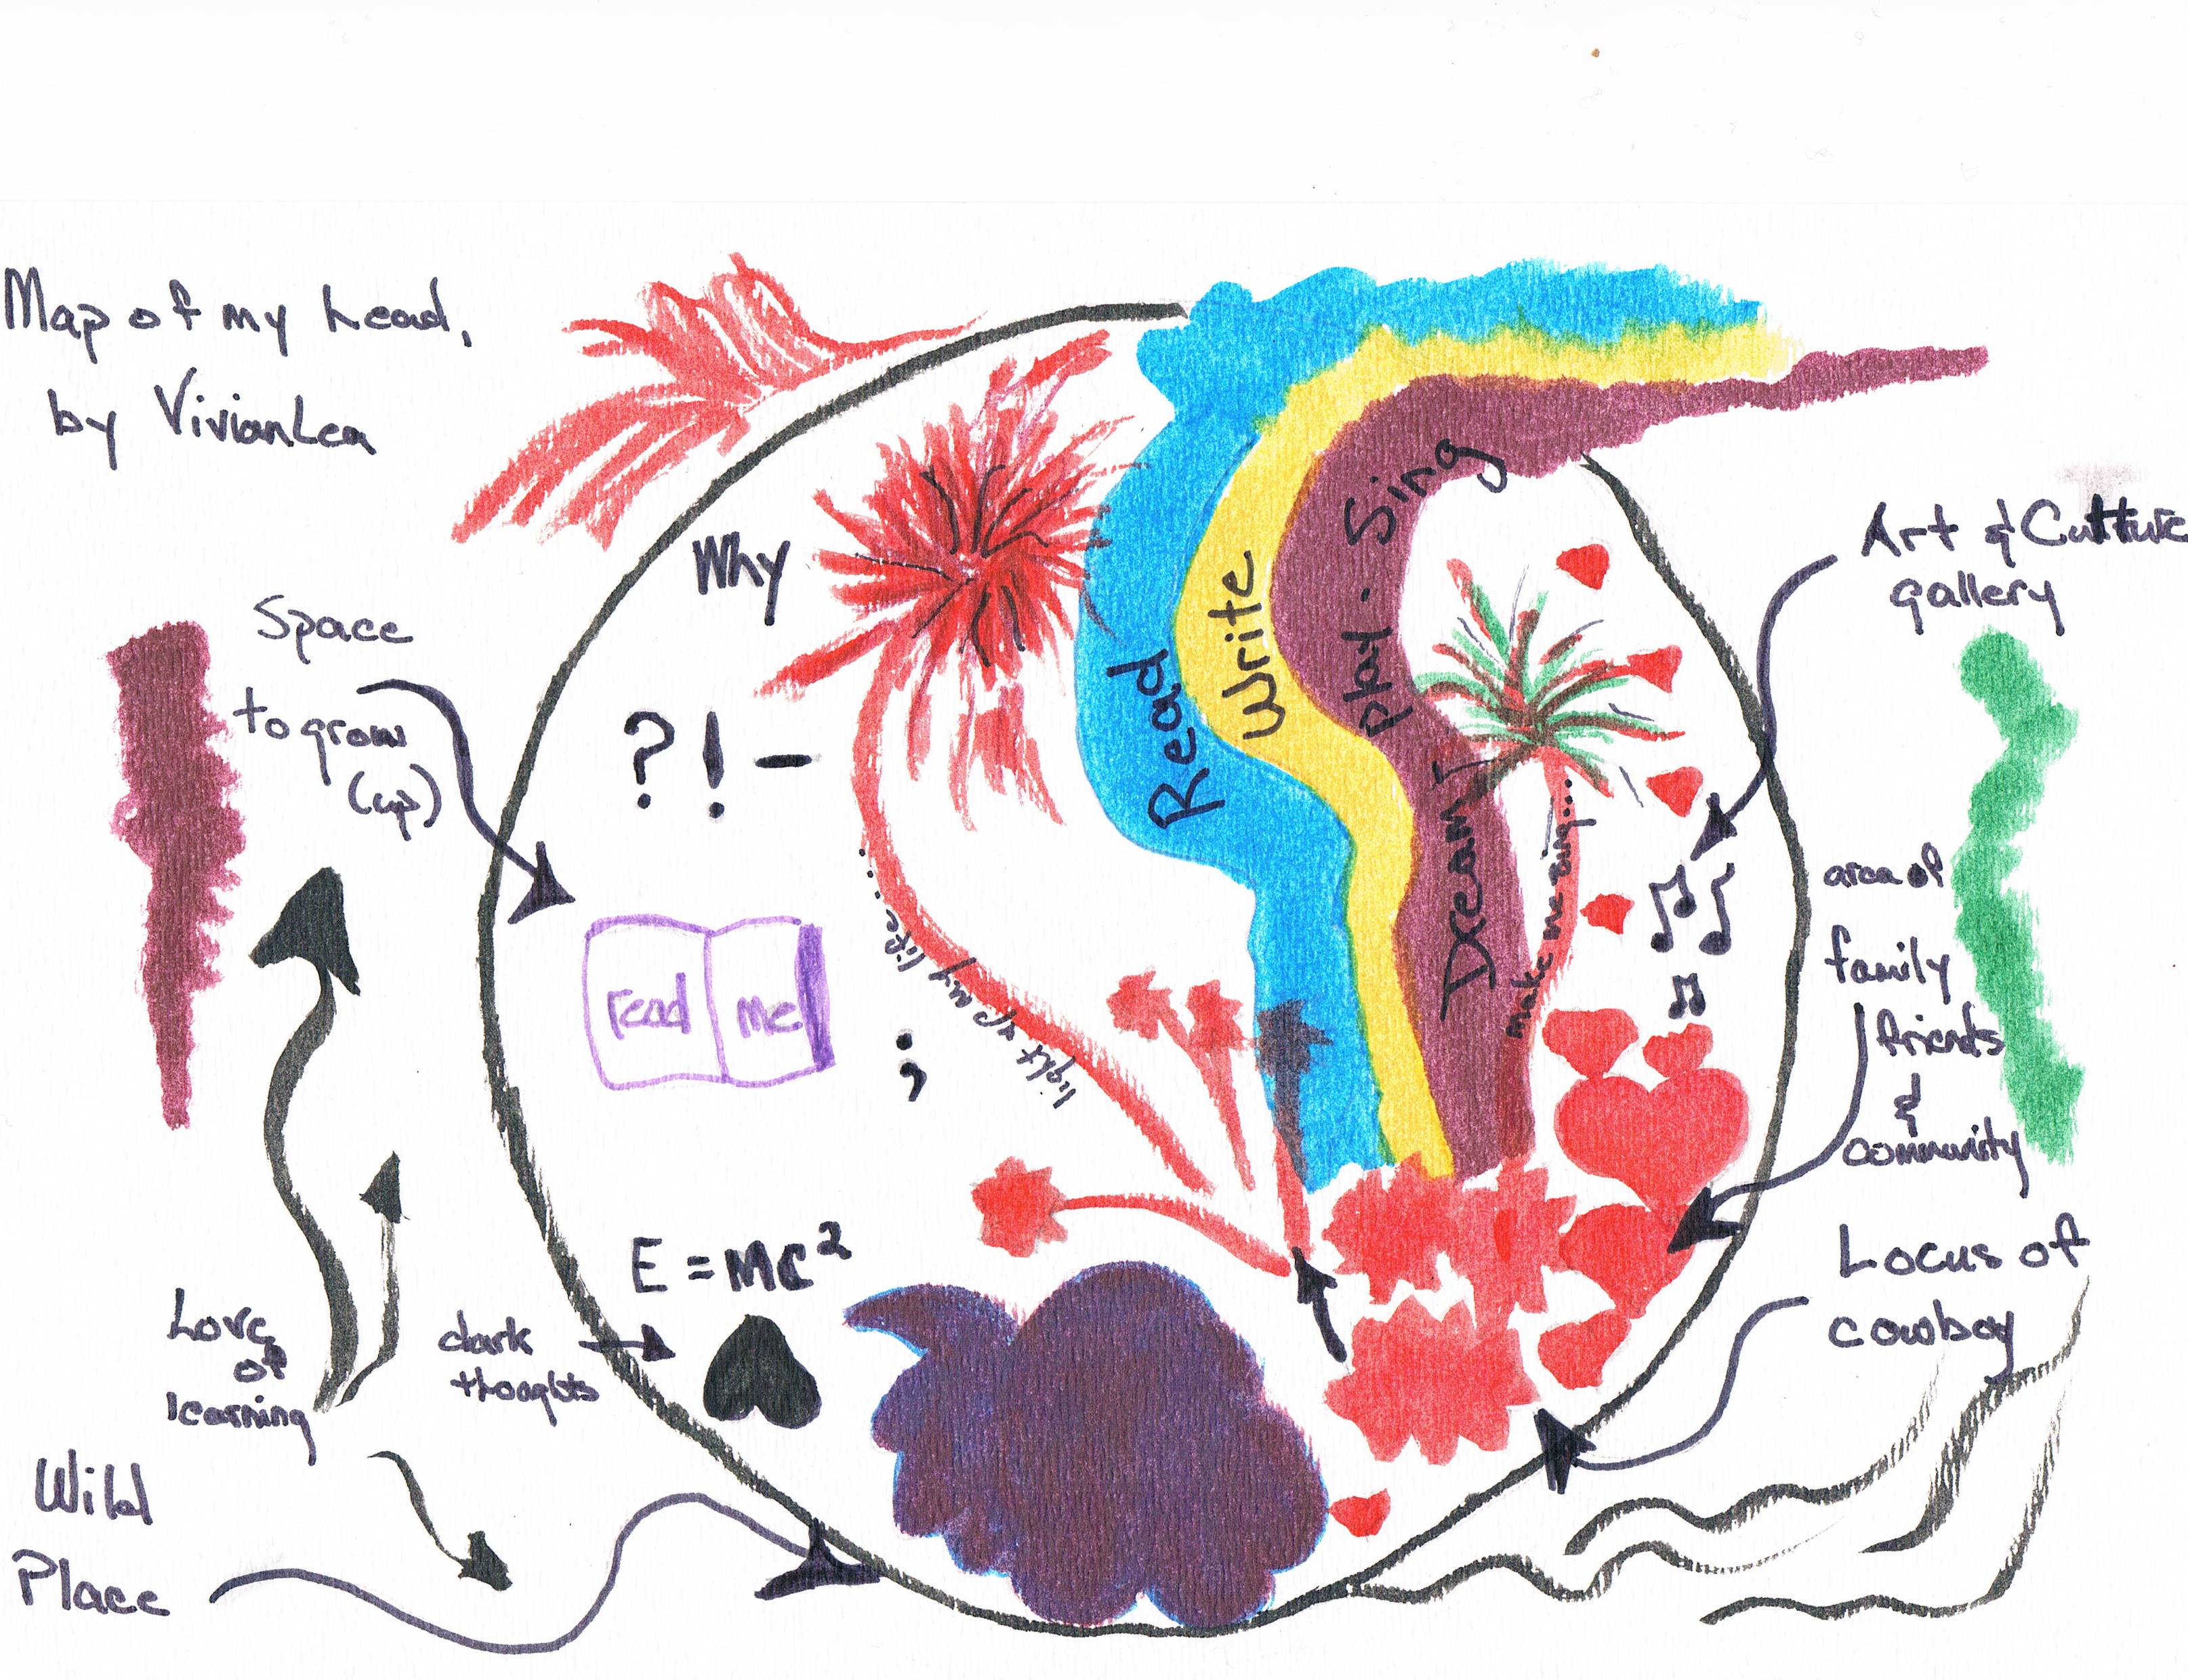 Map of my head,
by VivianLea
Space
to grow
(up)
Why
? ! -
read me
;
E = MC²
Love
of
learning
dark
thoughts
Wild
Place
light up my life....
Read
Write
Play - Sing
Dream
make me zing....
Art & Culture
gallery
area of
family
friends
&
community
Locus of
cowboy